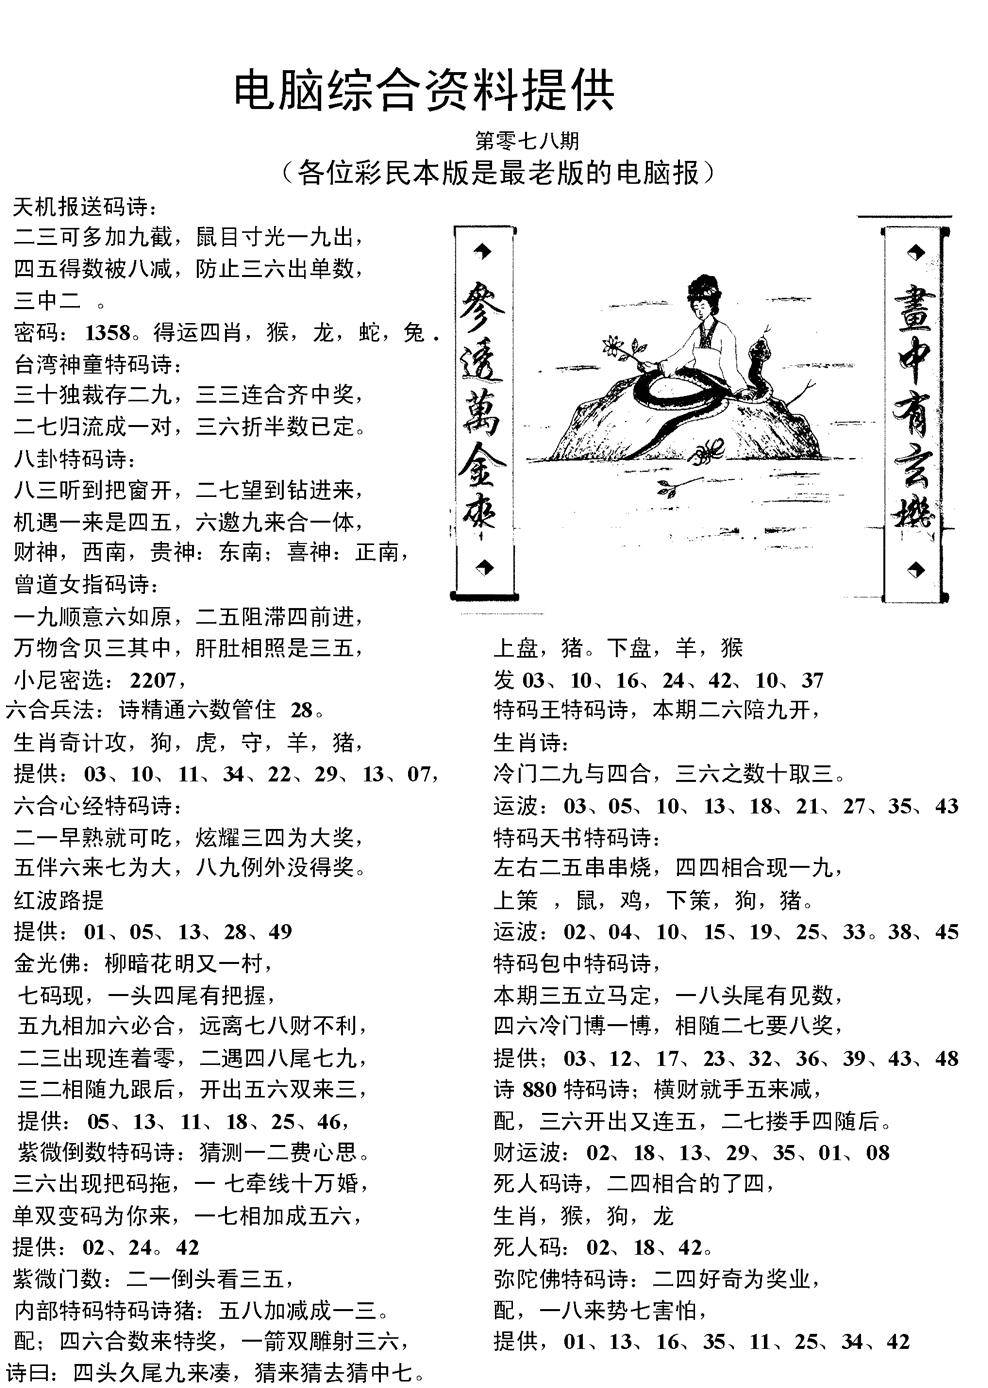 电脑综合资料提供
第零七八期
（各位彩民本版是最老版的电脑报）
天机报送码诗：
二三可多加九截，鼠目寸光一九出，
四五得数被八减，防止三六出单数，
三中二 。
密码：1358。得运四肖，猴，龙，蛇，兔．
台湾神童特码诗：
三十独裁存二九，三三连合齐中奖，
二七归流成一对，三六折半数已定。
八卦特码诗：
八三听到把窗开，二七望到钻进来，
机遇一来是四五，六邀九来合一体，
财神，西南，贵神：东南；喜神：正南，
曾道女指码诗：
一九顺意六如原，二五阻滞四前进，
万物含贝三其中，肝肚相照是三五，
小尼密选：2207，
六合兵法：诗精通六数管住 28。
生肖奇计攻，狗，虎，守，羊，猪，
提供：03、10、11、34、22、29、13、07，
六合心经特码诗：
二一早熟就可吃，炫耀三四为大奖，
五伴六来七为大，八九例外没得奖。
红波路提
提供：01、05、13、28、49
金光佛：柳暗花明又一村，
七码现，一头四尾有把握，
五九相加六必合，远离七八财不利，
二三出现连着零，二遇四八尾七九，
三二相随九跟后，开出五六双来三，
提供：05、13、11、18、25、46，
紫微倒数特码诗：猜测一二费心思。
三六出现把码拖，一 七牵线十万婚，
单双变码为你来，一七相加成五六，
提供：02、24。42
紫微门数：二一倒头看三五，
内部特码特码诗猪：五八加减成一三。
配；四六合数来特奖，一箭双雕射三六，
诗曰：四头久尾九来凑，猜来猜去猜中七。
參透萬金來
畫中有玄機
上盘，猪。下盘，羊，猴
发 03、10、16、24、42、10、37
特码王特码诗，本期二六陪九开，
生肖诗：
冷门二九与四合，三六之数十取三。
运波：03、05、10、13、18、21、27、35、43
特码天书特码诗：
左右二五串串烧，四四相合现一九，
上策 ，鼠，鸡，下策，狗，猪。
运波：02、04、10、15、19、25、33。38、45
特码包中特码诗，
本期三五立马定，一八头尾有见数，
四六冷门博一博，相随二七要八奖，
提供；03、12、17、23、32、36、39、43、48
诗 880 特码诗；横财就手五来减，
配，三六开出又连五，二七搂手四随后。
财运波：02、18、13、29、35、01、08
死人码诗，二四相合的了四，
生肖，猴，狗，龙
死人码：02、18、42。
弥陀佛特码诗：二四好奇为奖业，
配，一八来势七害怕，
提供，01、13、16、35、11、25、34、42